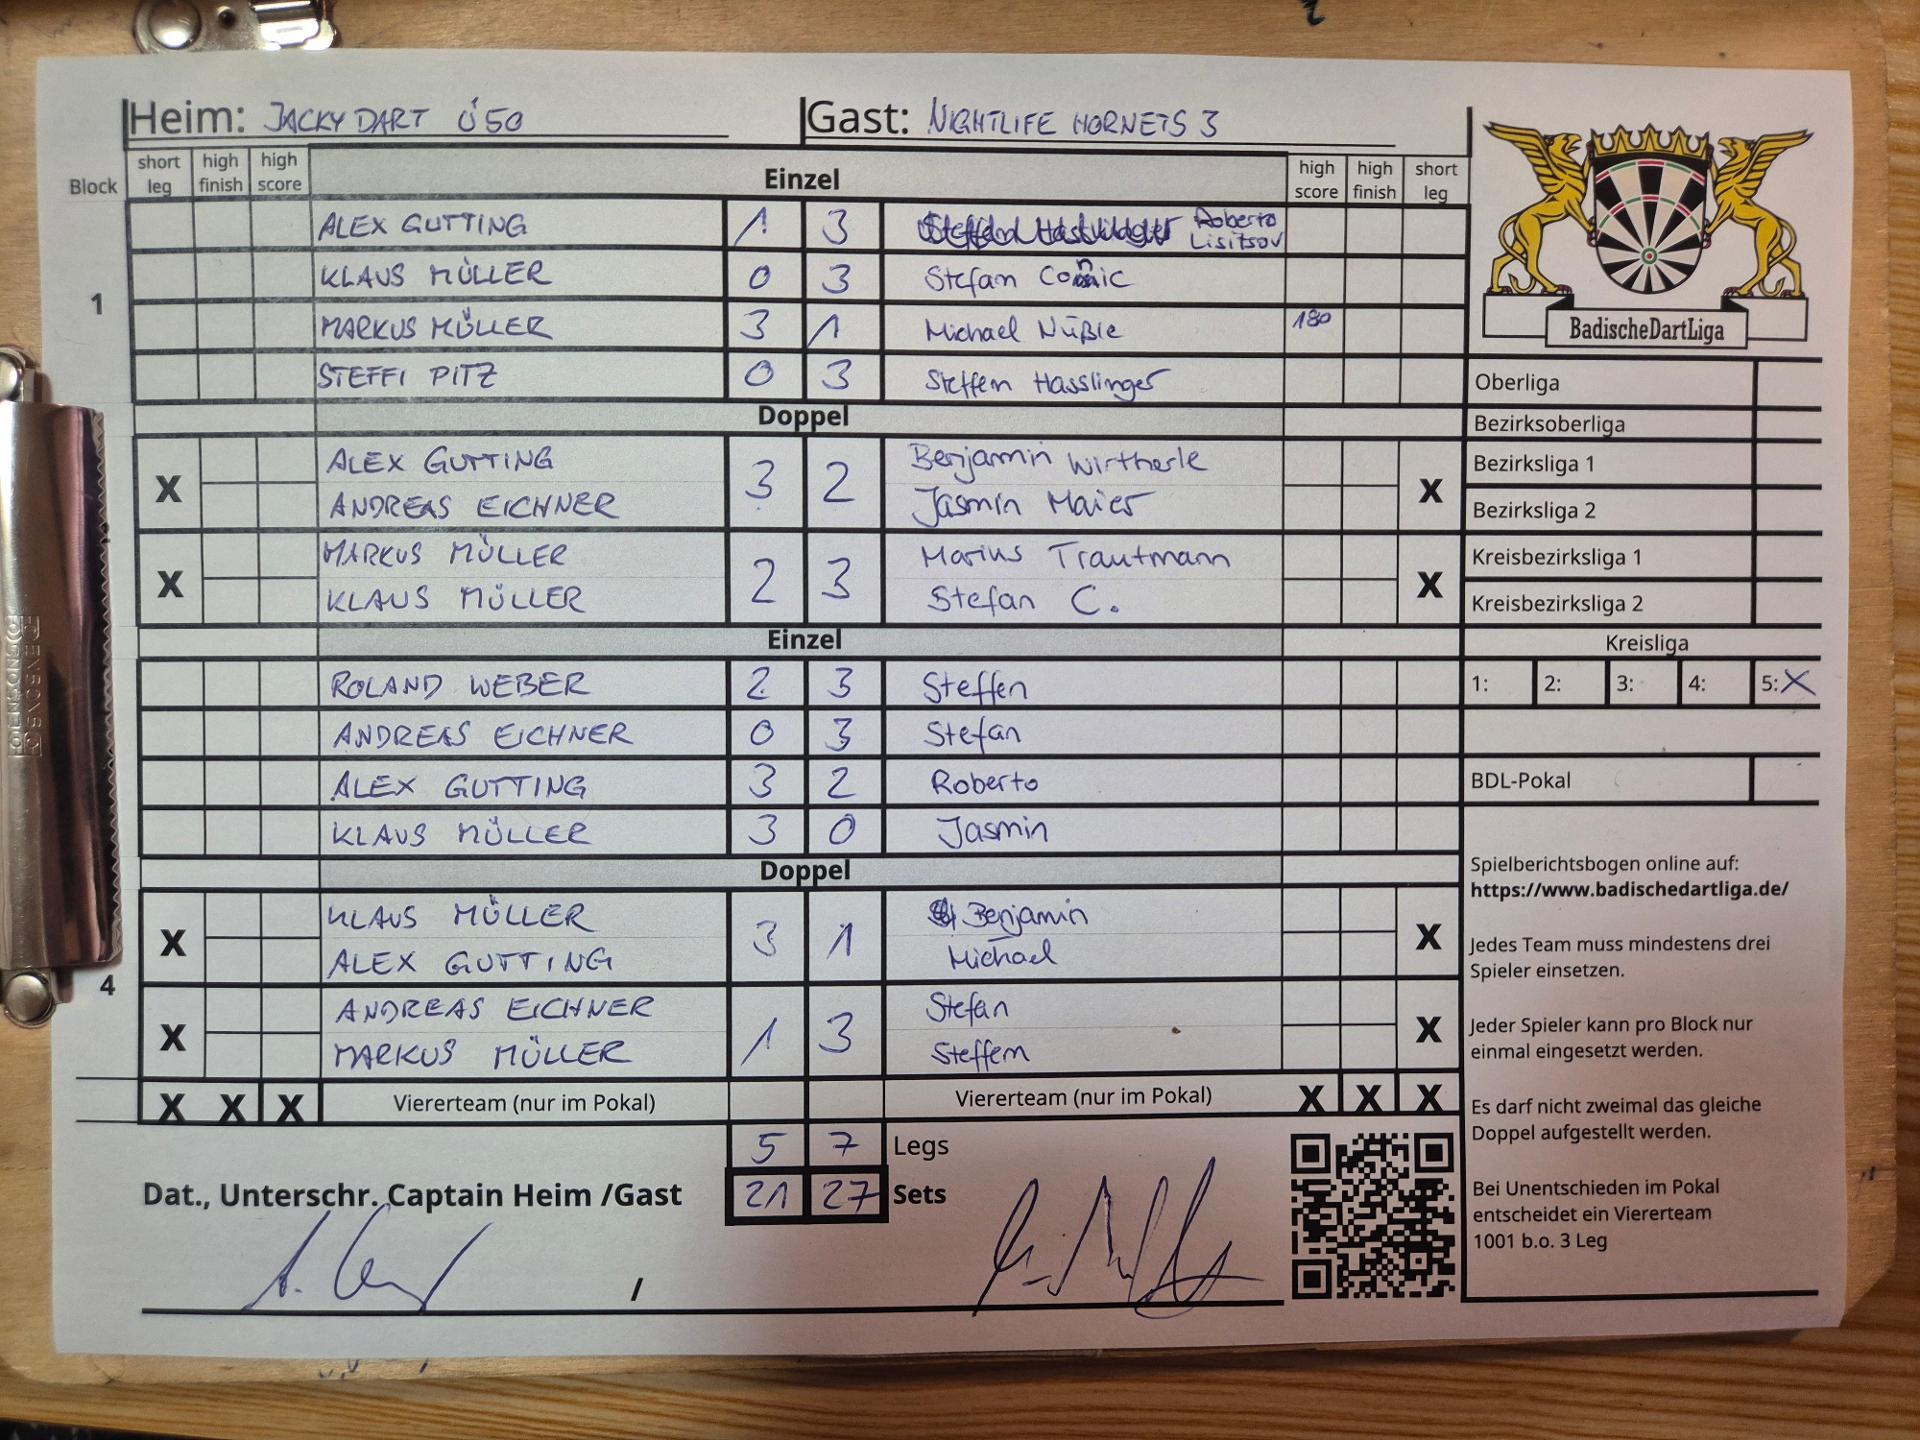 Heim: JACKY DART Ü50 Gast: NIGHTLIFE HORNETS 3
Block short leg high finish high score Einzel high score high finish short leg
ALEX GUTTING 1 3 Roberto Lisitsov
KLAUS MÜLLER 0 3 Stefan
1
MARKUS MÜLLER 3 1 Michael Nüßle 180
STEFFI PITZ 0 3 Steffen Hasslinger
Doppel
X ALEX GUTTING 3 2 Benjamin Wirtherle X
ANDREAS EICHNER Jasmin Maier
X MARKUS MÜLLER 2 3 Marius Trautmann X
KLAUS MÜLLER Stefan C.
Einzel
ROLAND WEBER 2 3 Steffen
ANDREAS EICHNER 0 3 Stefan
ALEX GUTTING 3 2 Roberto
KLAUS MÜLLER 3 0 Jasmin
Doppel
X KLAUS MÜLLER 3 1 Benjamin X
ALEX GUTTING Michael
4
X ANDREAS EICHNER 1 3 Stefan X
MARKUS MÜLLER Steffen
X X X Viererteam (nur im Pokal) Viererteam (nur im Pokal) X X X
5 7 Legs
Dat., Unterschr. Captain Heim /Gast 21 27 Sets
/
BadischeDartLiga
Oberliga
Bezirksoberliga
Bezirksliga 1
Bezirksliga 2
Kreisbezirksliga 1
Kreisbezirksliga 2
Kreisliga
1: 2: 3: 4: 5: X
BDL-Pokal
Spielberichtsbogen online auf:
https://www.badischedartliga.de/
Jedes Team muss mindestens drei
Spieler einsetzen.
Jeder Spieler kann pro Block nur
einmal eingesetzt werden.
Es darf nicht zweimal das gleiche
Doppel aufgestellt werden.
Bei Unentschieden im Pokal
entscheidet ein Viererteam
1001 b.o. 3 Leg